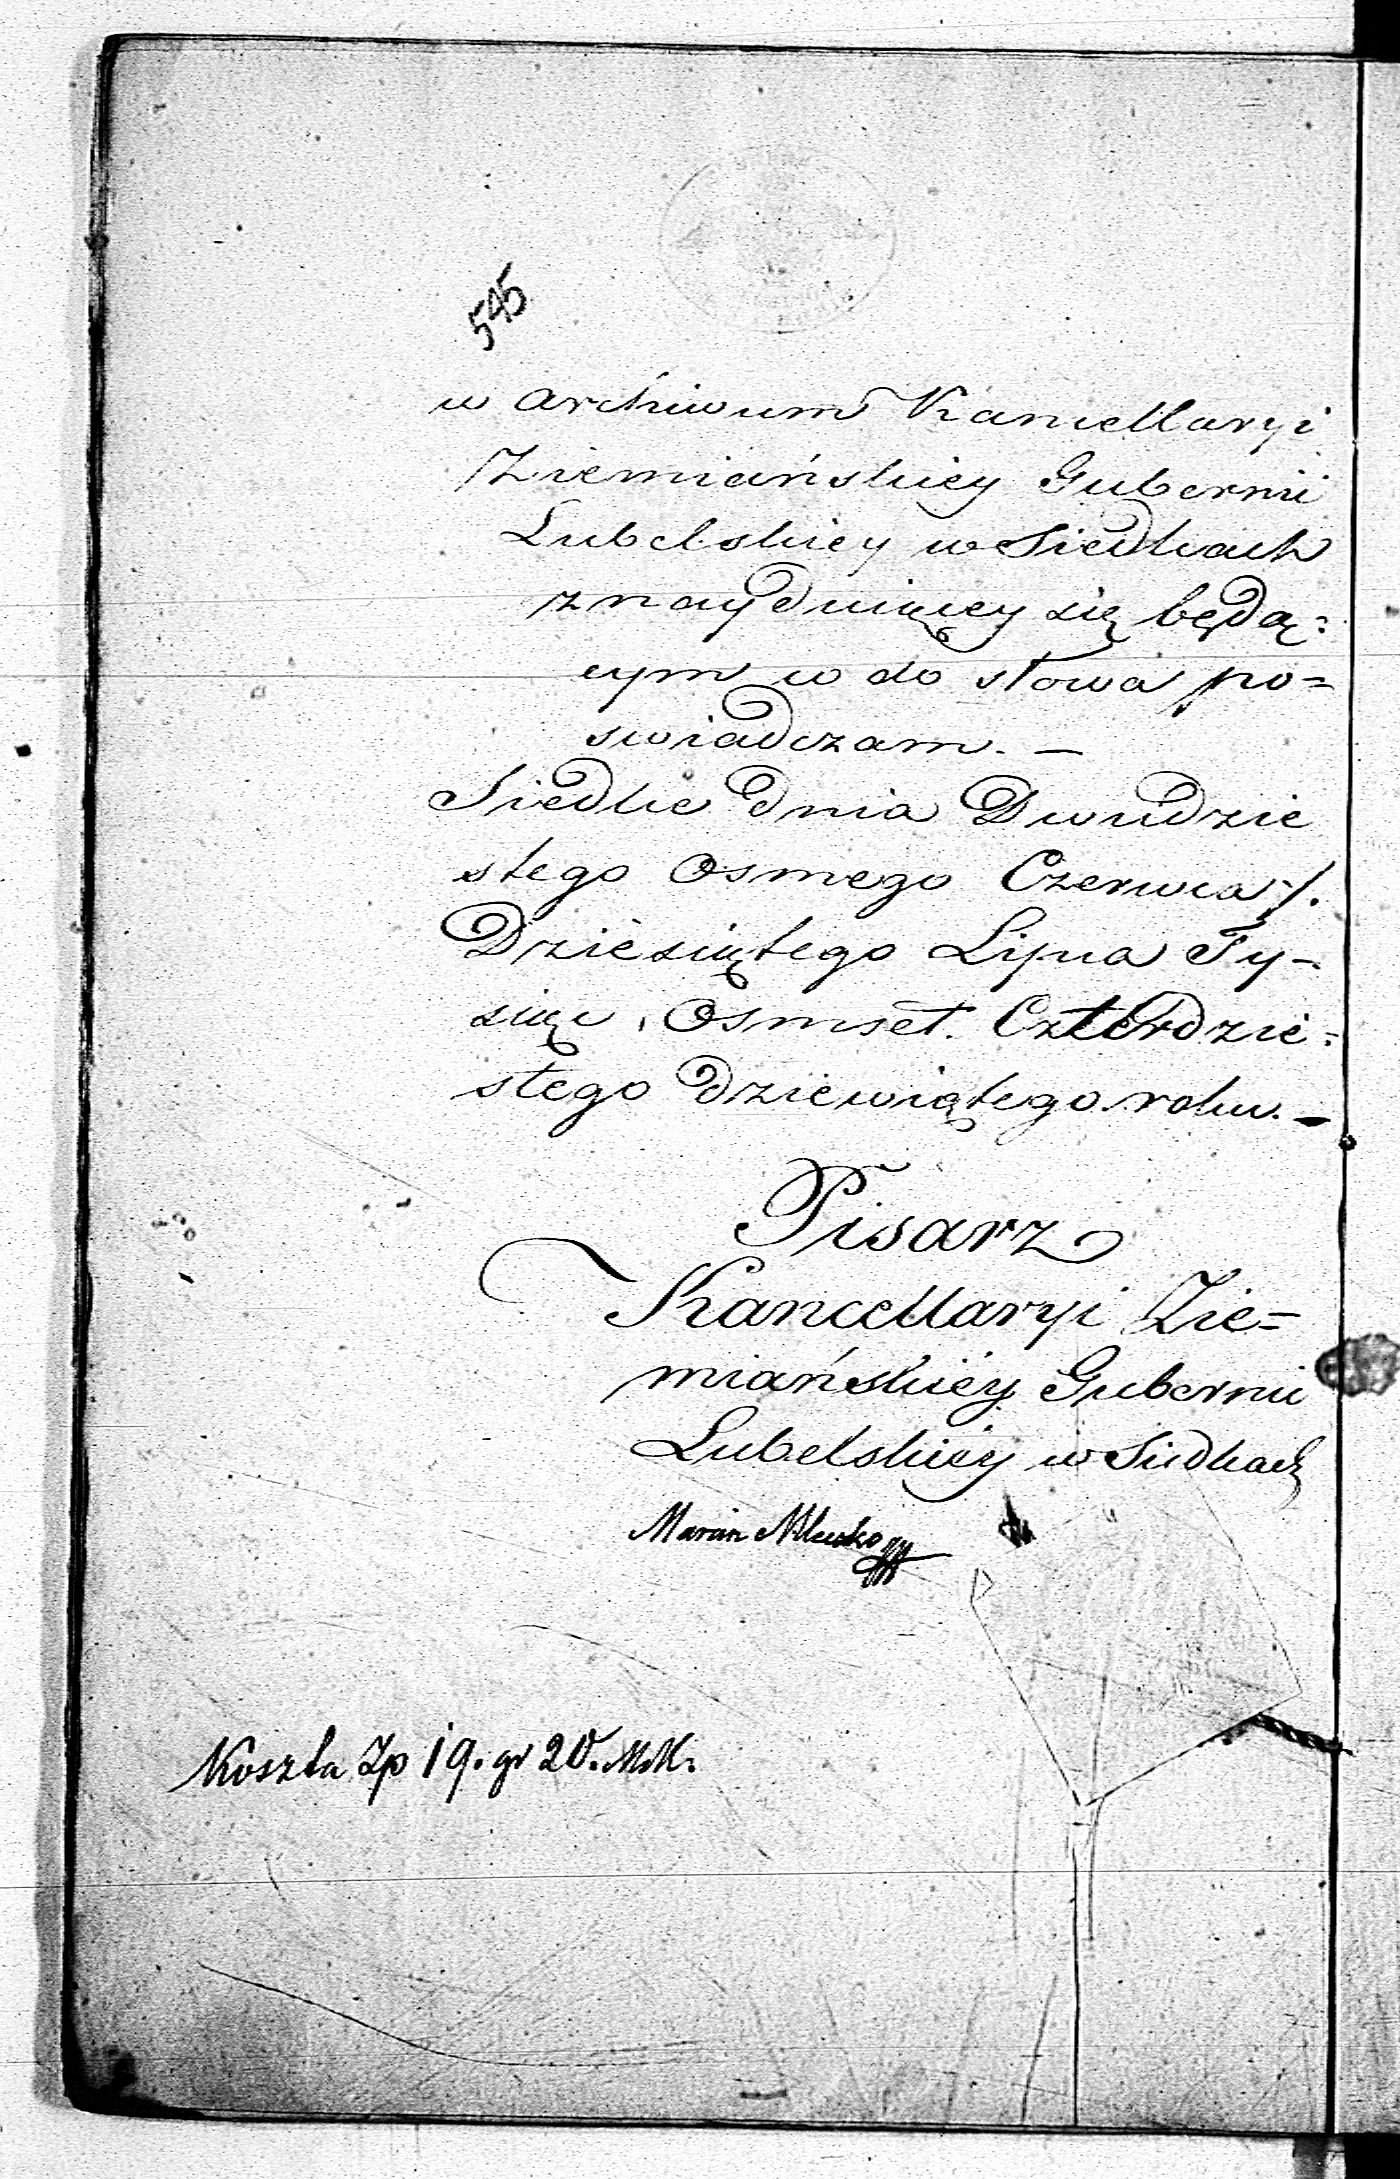 545
w Archiwum Kancellaryi
Ziemiańskiey Gubernii
Lubelskiey w Siedlcach
znayduiącey się będą=
cym w do słowa po=
swiadczam. —
Siedlce dnia Dwudzie
stego Osmego Czerwca /.
Dziesiątego Lipca Ty-
siąc Osmset. Czterdzie=
stego dziewiątego roku. —
Pisarz
Kancellaryi Zie=
miańskiéy Gubernii
Lubelskiéy w Siedlcach
Koszta Zp 19. gr 20. MM.